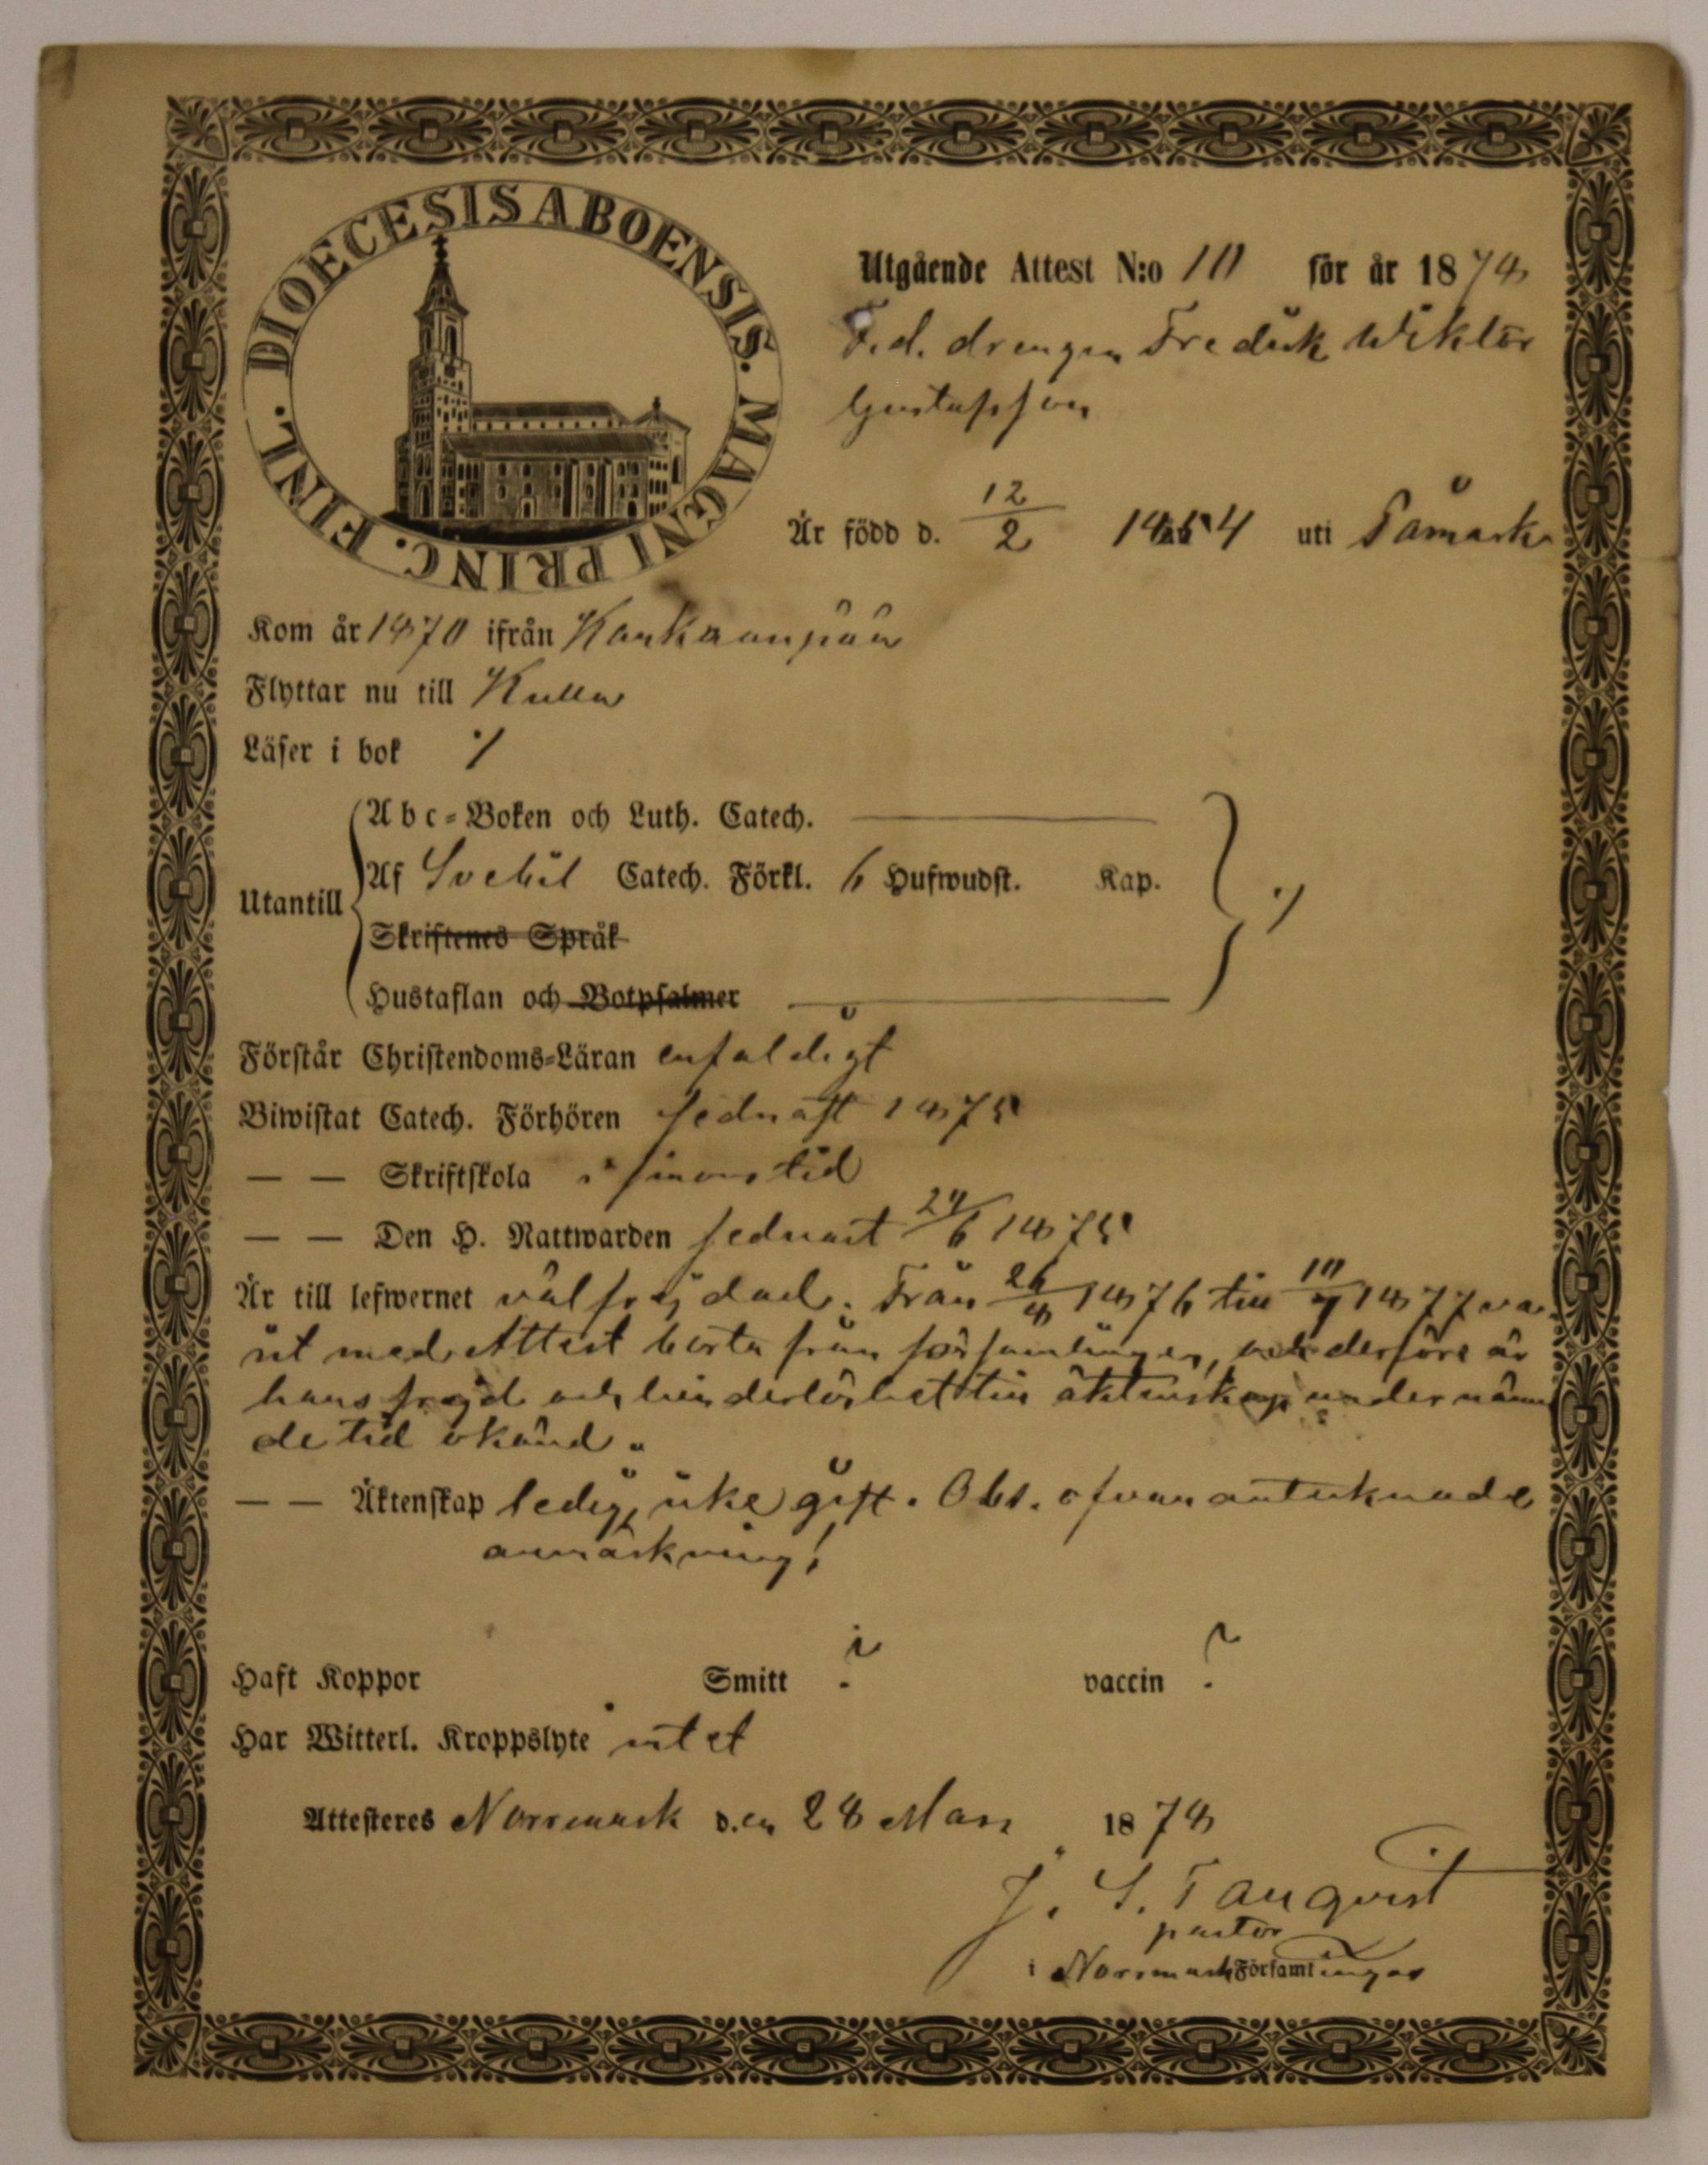 DIOECESIS ABOENSIS. MAGNI PRINC. FINL.
Utgående Attest N:o 10 för år 1878
F.d. drengen Fredrik Wiktor
Gustafsson
Är född d. 12/2 1854 uti Påmark
Kom år 1870 ifrån Kankaanpää
Flyttar nu till Kulla
Läser i bok ·/
Utantill
Abc-Boken och Luth. Catech.
Af Svebil Catech. Förkl. 6 Hufwudst. Kap. ·/
Skriftenes Språk
Hustaflan och Botpsalmer
Förstår Christendoms-Läran enfaldigt
Biwistat Catech. Förhören sednast 1875
— — Skriftskola i sinom tid
— — Den H. Nattwarden sednast 24/6 1875
Är till lefwernet välfrejdad. Från 26/8 1876 till 10/7 1877 var
it med Attest borta från församlingen, och derföre är
hans frejd och hinderlöshet till äktenskap under nämn
de tid okänd.
— — Äktenskap ledig, icke gift. Obs. ofvan antecknade
anmärkning!
Haft Koppor Smitt ? vaccin ?
Har Witterl. Kroppslyte intet
Attesteres Norrmark d.en 28 Mars 1878
J. S. Tanqvist
pastor
i Norrmark Församlingar